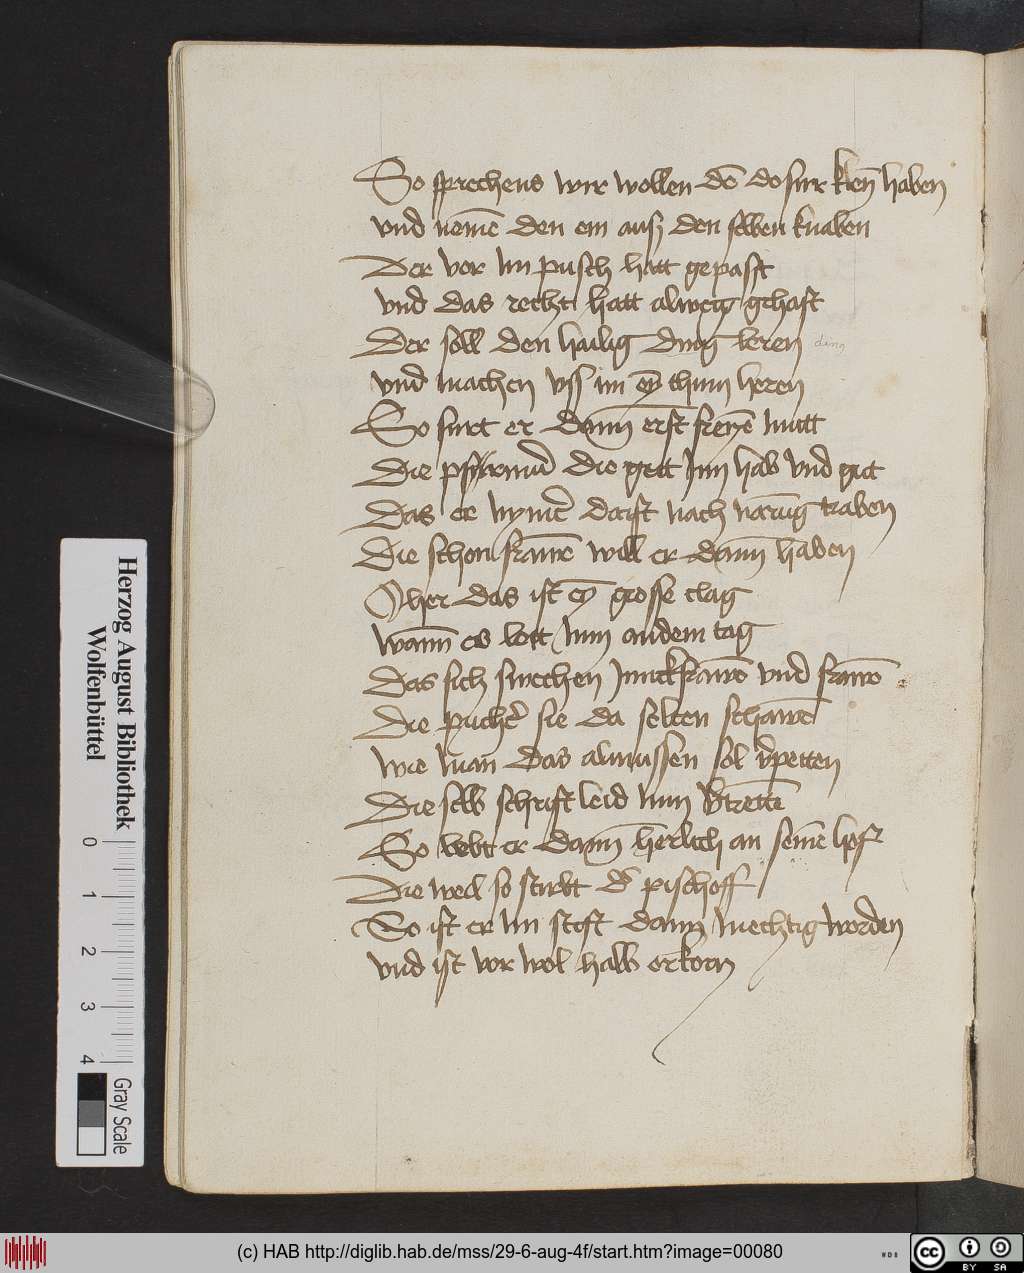 So sprechens wir wollen dē do fur kēn haben
vnd nemē den ein auß den selben knaben
Der vor im pusch hatt gepasst
vnd das recht hatt alweg gehast
Der soll den hailig ding leren
ding
vnd machen vss im eȳ thum heren
So furt er dann erst freyē mutt
Die pfrund die gett Im hab vnd gut
Das er nymē darft nach narūg traben
Die schon frawē will er dann haben
O her das ist eȳ grosse clag
wann es lott Inn andem tag
Das sich swechen Junckfrawē vnd frawē
Die puchē sie da selten schawē
wie man das almussen sol petten
Die selb schrift leid Inn
So lebt er dann herlich an seinē
Die weil so stirbt pischoff
So ist er im stift dann mechtig worden
vnd ist vor wol halb erkorn
Herzog August Bibliothek
Wolfenbüttel
0 1 2 3 4
Gray Scale
(c) HAB http://diglib.hab.de/mss/29-6-aug-4f/start.htm?image=00080
WDB
cc BY SA